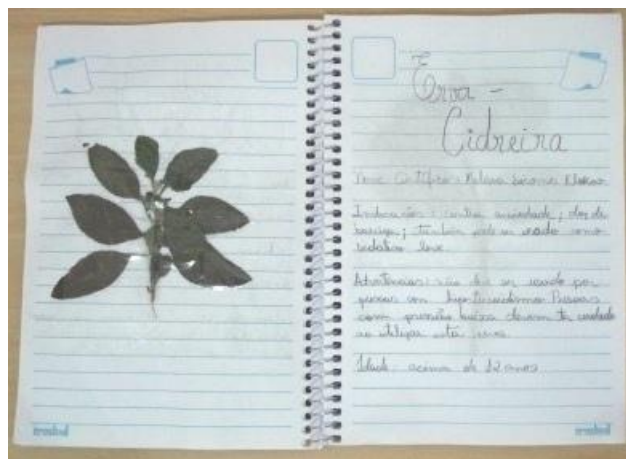 Erva -
Cidreira
Nome Científico: Melissa
Indicações: contra ansiedade; dor de
barriga; também pode ser usado como
sedativo leve.
Advertências: não deve ser usado por
pessoas com hipotireoidismo. Pessoas
com pressão baixa devem ter cuidado
ao utilizar esta
Idade: acima de 12 anos